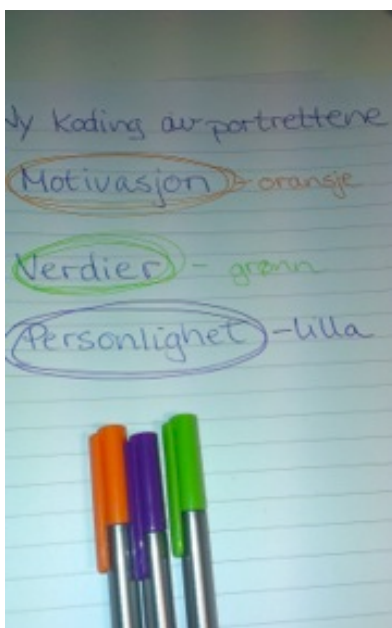 Ny koding av portrettene
Motivasjon - oransje
Verdier - grønn
Personlighet - lilla